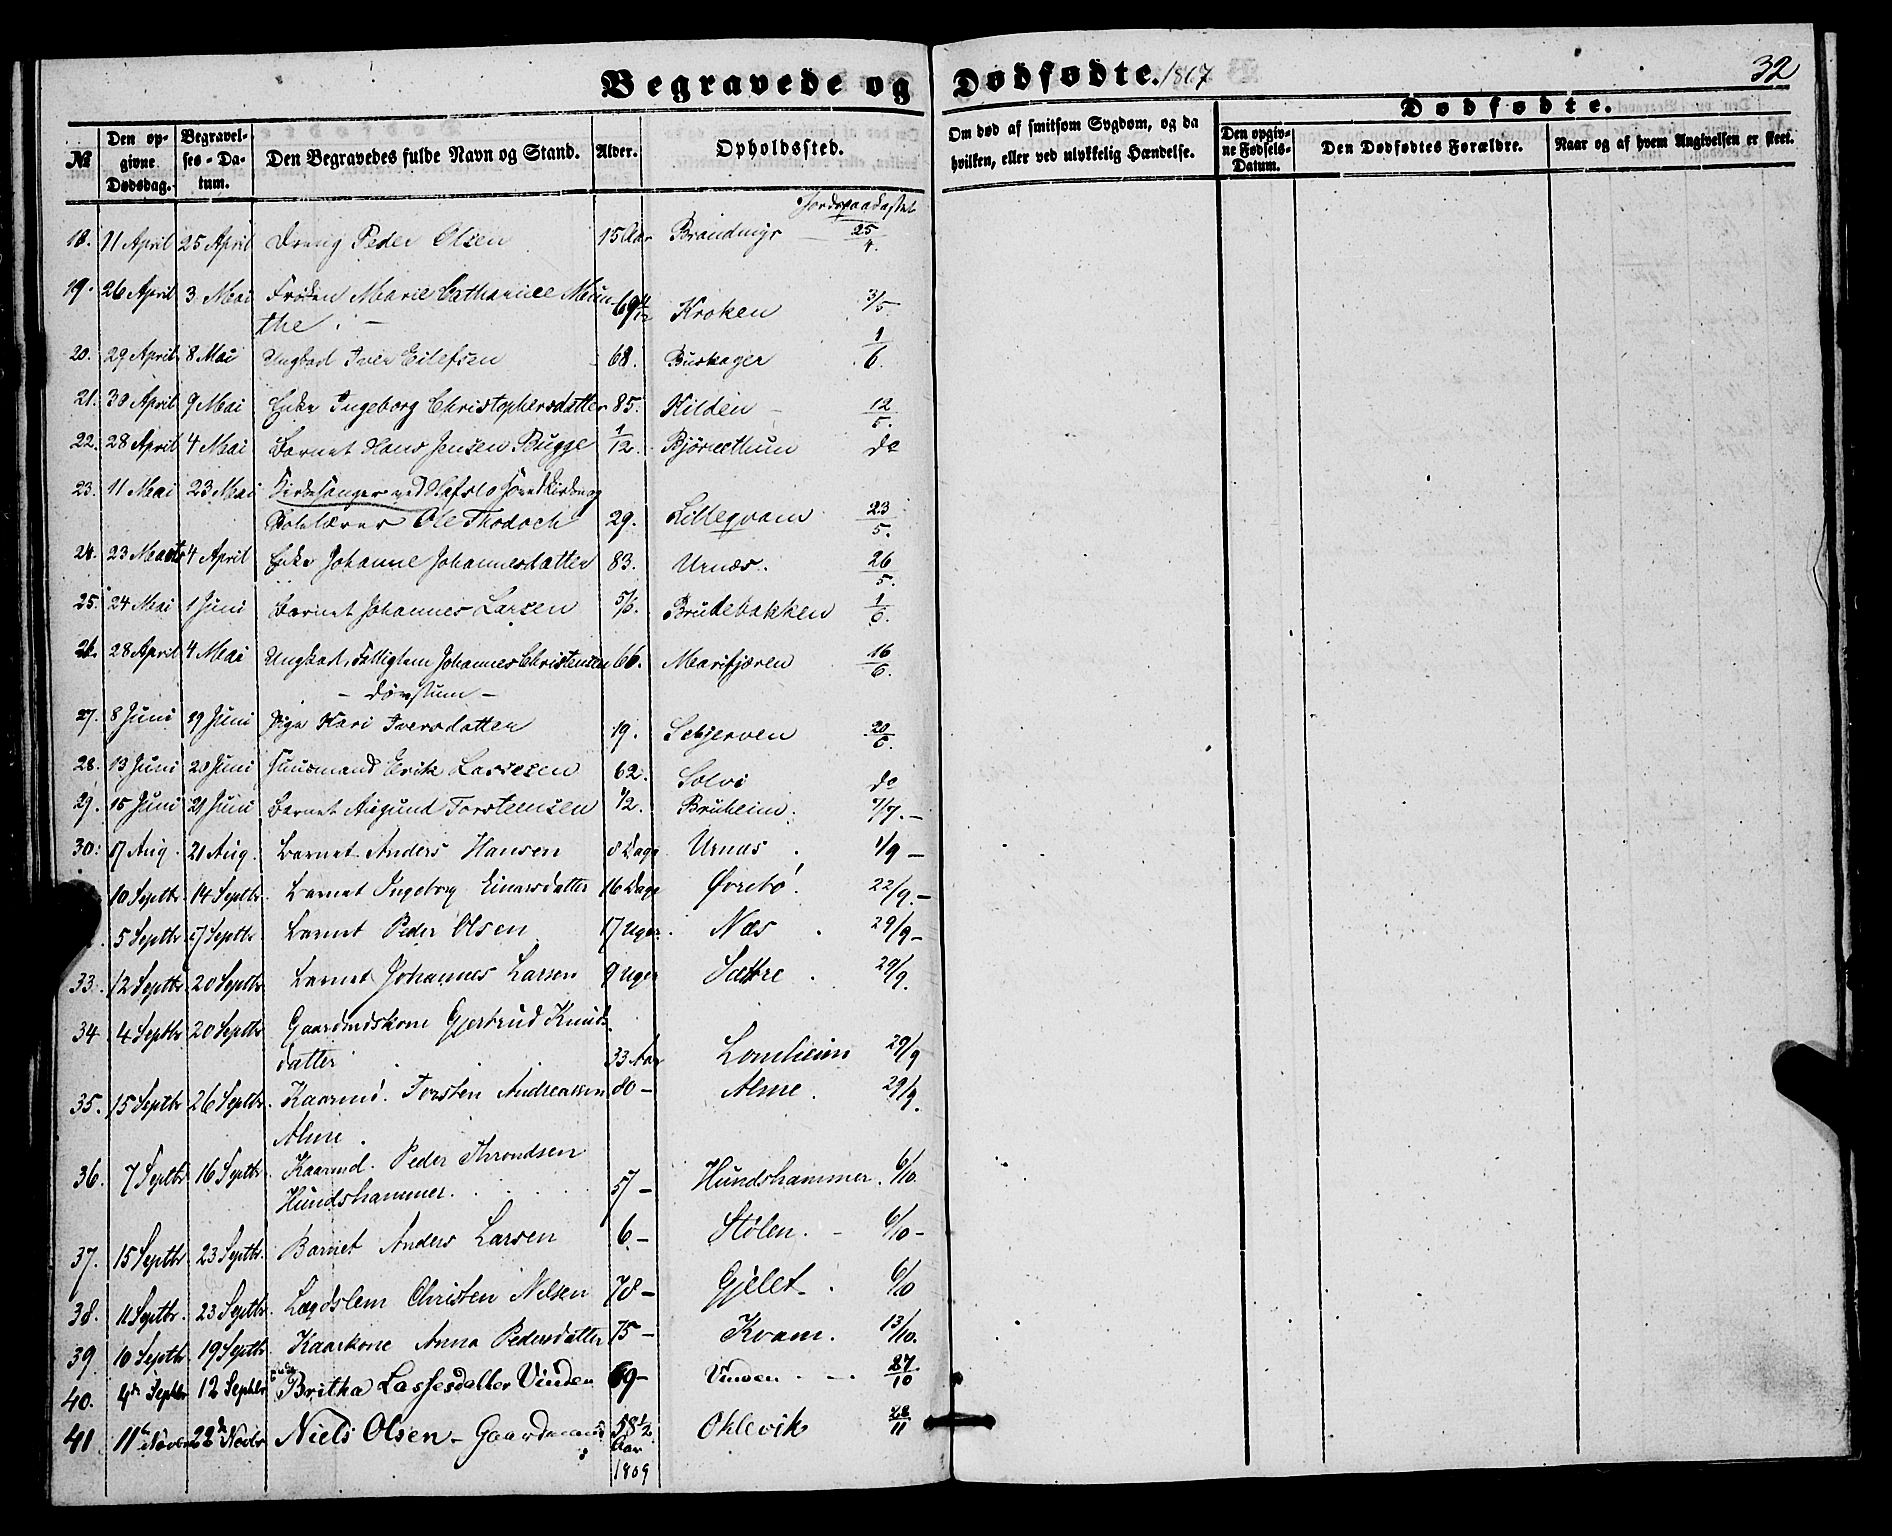 Begravede og Dødfødte. 1867
32
No
Den opgivne Dødsdag.
Begravelses-Datum.
Den Begravedes fulde Navn og Stand.
Alder.
Opholdssted.
Om død af smitsom Sygdom, og da hvilken, eller ved ulykkelig Hændelse.
Dødfødte.
Den opgivne Fødsels-Datum.
Den Dødfødtes Forældre.
Naar og af hvem Angivelsen er skeet.
Jordspaakastet
18. 11 April 25 April Dreng Peder Olsen 15 Aar Brandmyr 25/4.
19. 26 April 3 Mai Frøken Marie Catharine Mun
the. 69 Kroken 3/5
20. 29 April 8 Mai Ungkad Iver Eilefsen 68. Buskager 1/6.
21. 30 April 9 Mai Enke Ingeborg Christophersdatter 85. Kilden 12/5.
22. 28 April 4 Mai Barnet Hans Jensen Bugge 1/12. do
23. 11 Mai 23 Mai Kirkesanger ved Hafslo Hovedkirke og
Ole 29. Lilleqvam 23/5.
24. 23 Marts 4 April Enke Johanne Johannesdatter 83. Urnæs. 26/5.
25. 24 Mai 1 Juni Barnet Johannes Larsen 5/6. Brudebakken 1/6.
26. 28 April 4 Mai Ungkad, Fattiglem Johannes Christensen 66. Marifjæren 16/6.
- Døvstum -
27. 8 Juni 19 Juni Pige Kari Iversdatter 19. 20/6.
28. 13 Juni 20 Juni Huusmand Erik Lassesen 62. Solvi do
29. 15 Juni 20 Juni Barnet Aagund Torsteinsen 1/2. Bruheim. 7/7.-
30. 17 Aug. 21 Aug. Barnet Anders Hansen 8 Dage Urnæs 1/9 -
10 Septbr. 14 Septbr. Barnet Ingeborg Einarsdatter 16 Dage Øvrebø. 22/9.-
5 Septbr. 17 Septbr. Barnet Peder Olsen 17 Uger. Næs 29/9-
33. 12 Septbr. 20 Septbr. Barnet Johannes Larsen 9 Uger Sætre 29/9.
34. 4 Septbr. 20 Septbr. Gaardmdskone Gjertrud Knuds
datter 33 Aar Lomheim 29/9
35. 15 Septbr. 26 Septbr. Kaarmd. Torsten Andreassen 80 - Alme. 29/9.
Alme.
36. 7 Septbr. 16 Septbr. Kaarmd. Peder Throndsen
Hundshammer. 57 - Hundshammer. 6/10.
37. 15 Septbr. 23 Septbr. Barnet Anders Larsen 6 - Stølen. - 6/10 -
38. 11 Septbr. 23 Septbr. Lægdslem Christen Nilsen 78 - Gjelet. 6/10
39 10 Septbr. 19 Septbr. Kaarkone Anna Pedersdatter 75 - Kvam. 13/10.
40. 4de Septbr 12 Septbr Britha Lassesdatter Vinden 69 - Vinden 27/10
41. 11te Novbr 22de Novbr Niels Olsen - Gaardmand 58 1/2 Aar Oklevik 28/11
1809